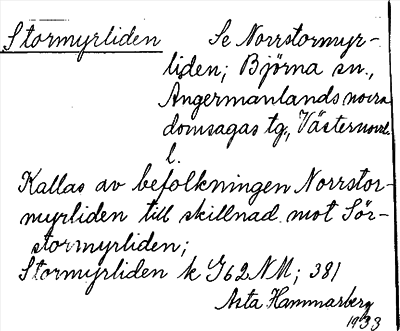 Stormyrliden Se Norrstormyr-
liden; Björna sn.,
Ångermanlands norra
domsagas tg., Västernorrl.
l.
Kallas av befolkningen Norrstor-
myrliden till skillnad mot Sör-
stormyrliden;
Stormyrliden k J62NM; 381
Asta Hammarberg
1933